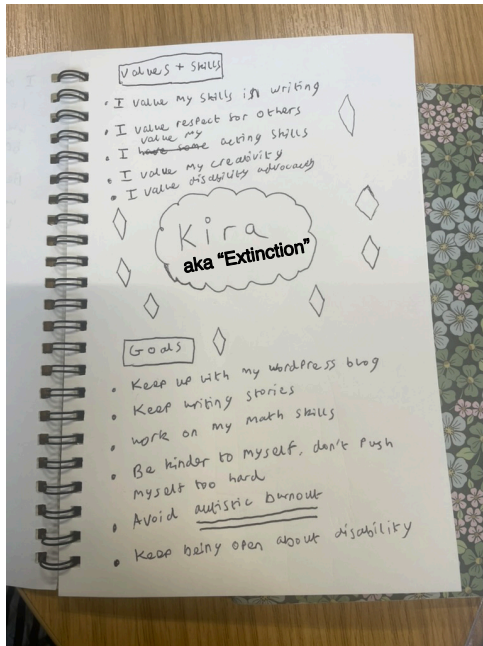 Values + Skills
• I value my skills in writing
• I value respect for others
value my
• I have some acting skills
• I value my creativity
• I value disability advocacy
Kira
aka “Extinction”
Goals
• Keep up with my wordpress blog
• Keep writing stories
• work on my math skills
• Be kinder to myself, don't push
myself too hard
• Avoid autistic burnout
• Keep being open about disability